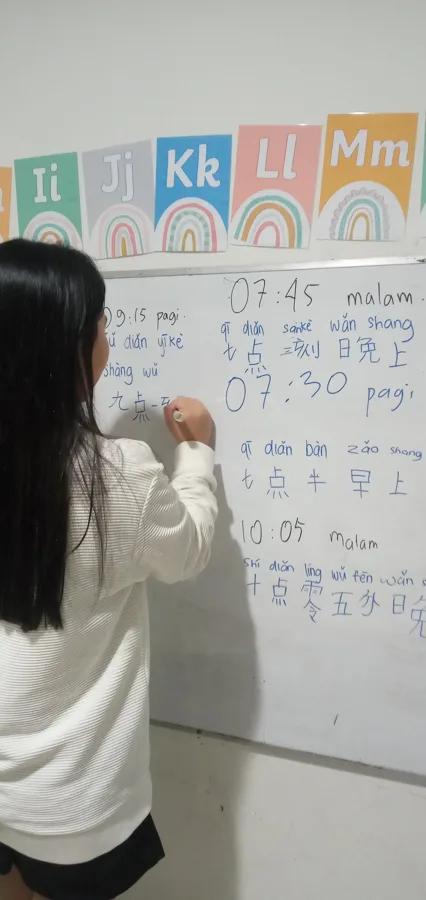 Ii Jj Kk Ll Mm
09:15 pagi.
diǎn yīkè
shàng wǔ
九点一
07:45 malam.
qī diǎn sānkè wǎn shang
七点三刻晚上
07:30 pagi
qī diǎn bàn zǎo shang
七点半早上
10:05 malam
shí diǎn líng wǔ fēn wǎn
十点零五分晚